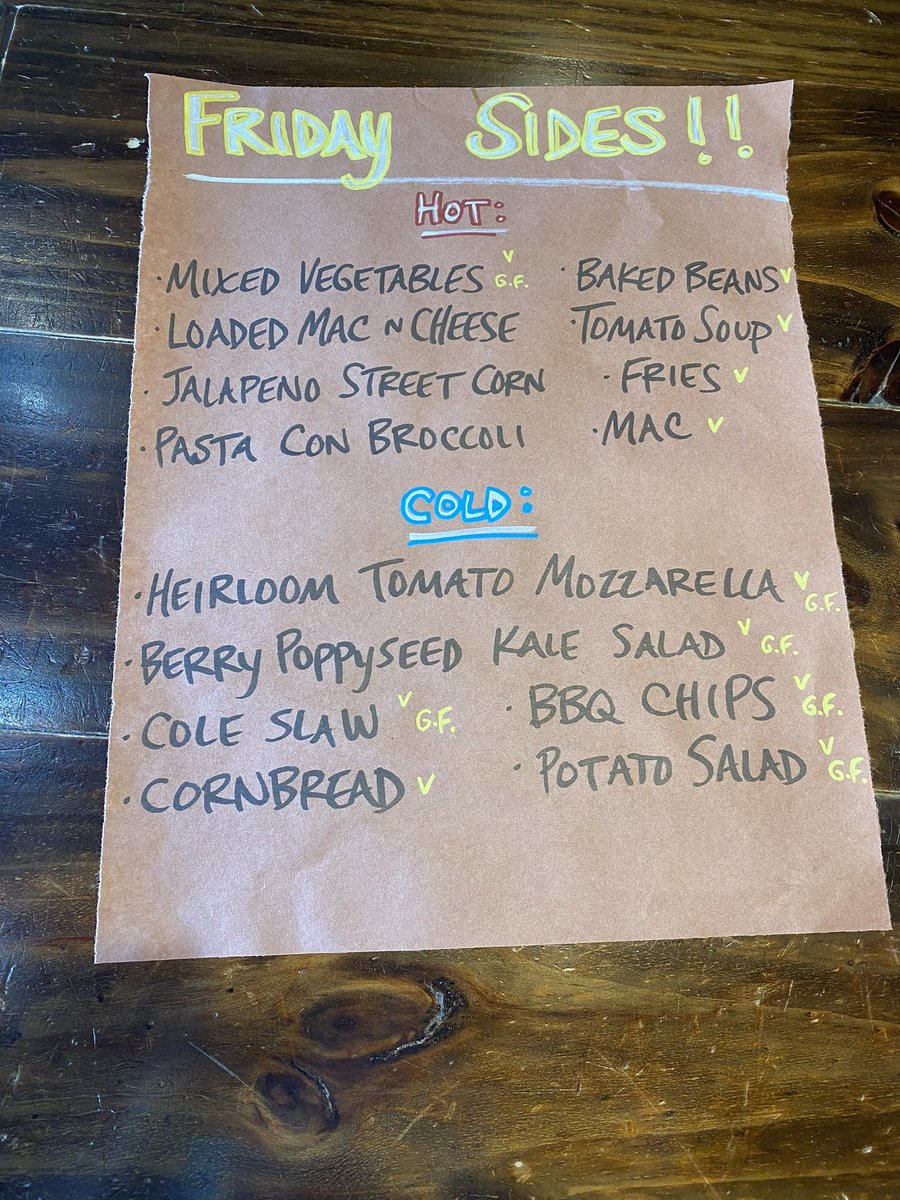 FRIDAY SIDES!!
HOT:
· MIXED VEGETABLES V G.F.
· BAKED BEANS V
· LOADED MAC N CHEESE
· TOMATO SOUP V
· JALAPENO STREET CORN
· FRIES V
· PASTA CON BROCCOLI
· MAC V
COLD:
· HEIRLOOM TOMATO MOZZARELLA V G.F.
· BERRY POPPYSEED KALE SALAD V G.F.
· COLE SLAW V G.F.
· BBQ CHIPS V G.F.
· CORNBREAD V
· POTATO SALAD V G.F.